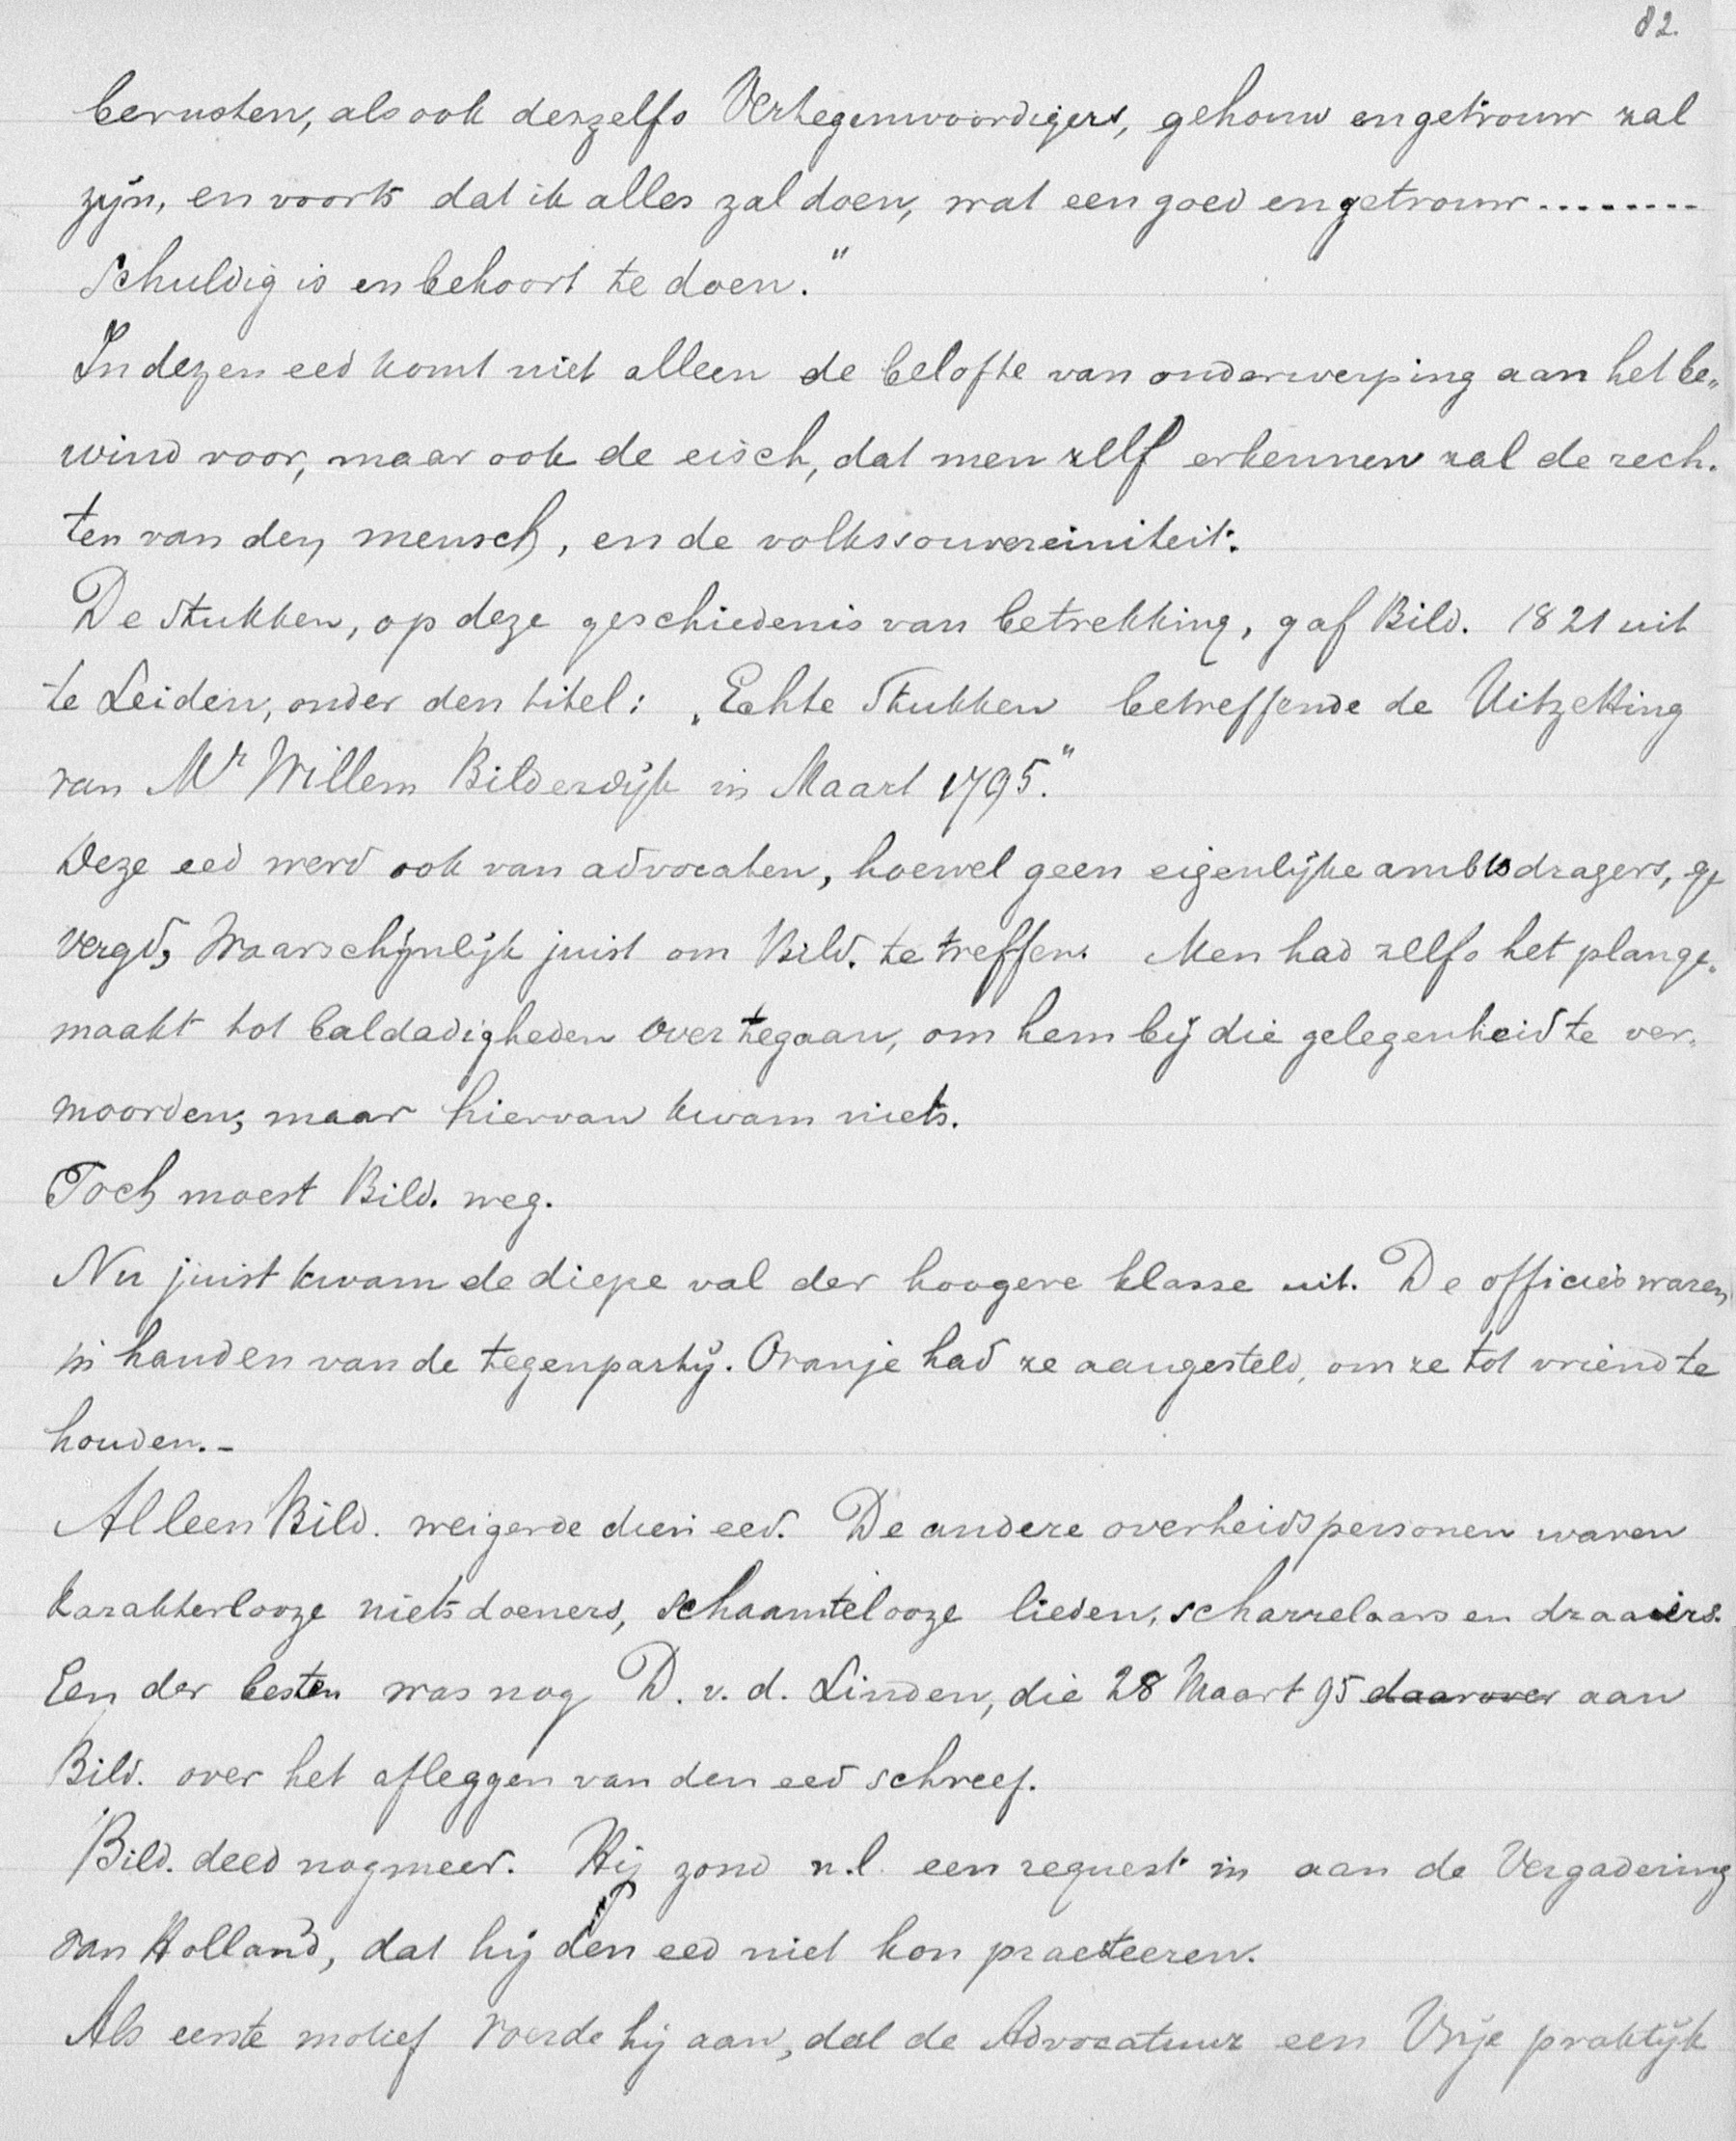 82.
berusten, als ook deszelfs Vertegenwoordigers, gehouw en getrouw zal
zijn, en voorts dat ik alles zal doen, wat een goed en getrouw .........
schuldig is en behoort te doen."
In dezen eed komt niet alleen de belofte van onderwerping aan het be„
wind voor, maar ook de eisch, dat men zelf erkennen zal de rech.
ten van den mensch, en de volkssouvereiniteit.
De stukken, op deze geschiedenis van betrekking, gaf Bild. 1821 uit
te Leiden, onder den titel: „Echte Stukken betreffende de Uitzetting
van Mr Willem Bilderdijk in Maart 1795."
Deze eed werd ook van advocaten, hoewel geen eigenlijke ambtsdragers, ge
vergd, Waarschijnlijk juist om Bild. te treffen. Men had zelfs het plan ge.
maakt tot baldadigheden over te gaan, om hem bij die gelegenheid te ver.
moorden, maar hiervan kwam niets.
Toch moest Bild. weg.
Nu juist kwam de diepe val der hoogere klasse uit. De officies waren
in handen van de tegenpartij. Oranje had ze aangesteld, om ze tot vriend te
houden.-
Alleen Bild. weigerde dien eed. De andere overheidspersonen waren
karakterlooze nietsdoeners, schaamtelooze lieden, scharrelaars en draaiers.
Een der besten was nog D. v. d. Linden, die 28 Maart 95 daarover aan
Bild. over het afleggen van den eed schreef.
Bild. deed nog meer. Hij zond n.l. een request in aan de Vergadering
van Holland, dat hij den eed niet kon praesteeren.
Als eerste motief voerde hij aan, dat de Advocatuur een Vrije praktijk